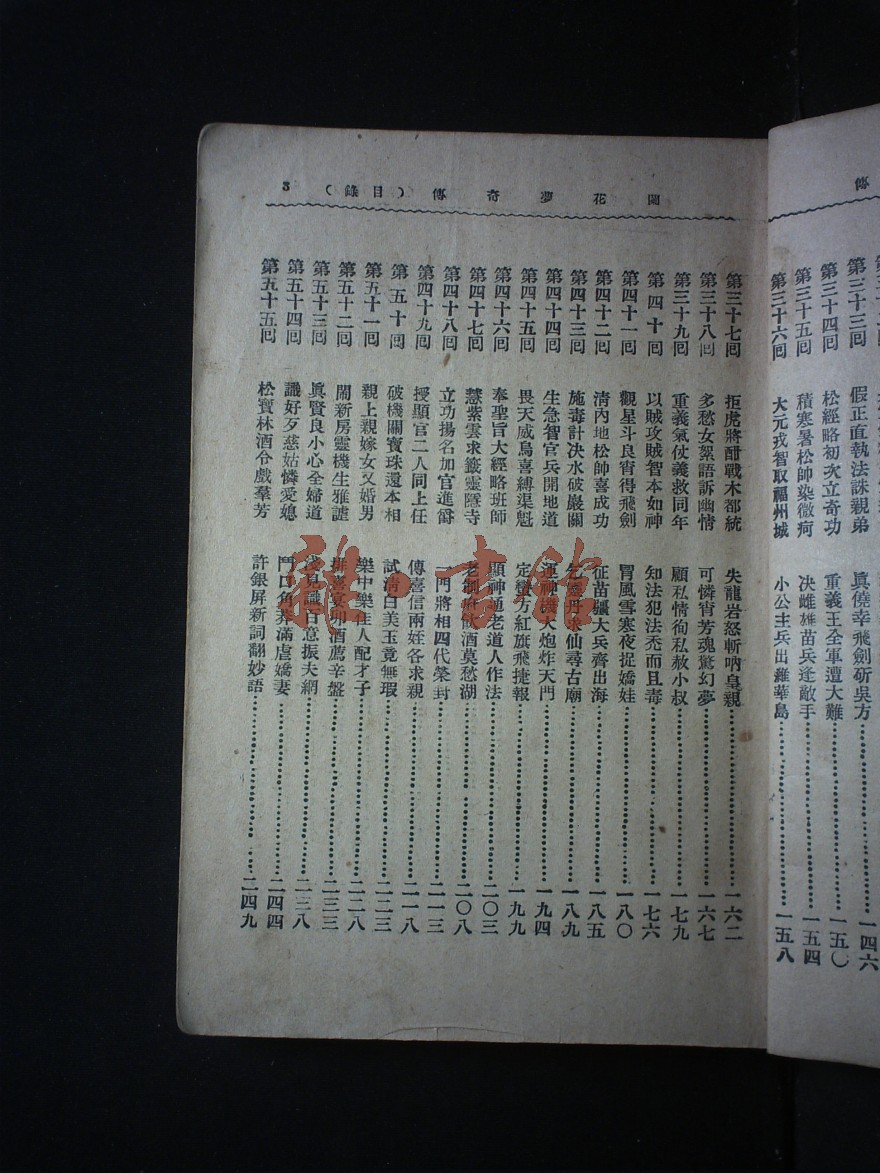 傳
第三十三回 假正直執法誅親弟 眞僥幸飛劍斫吳方 一四六
第三十四回 松經略初次立奇功 重義王全軍遭大難 一五〇
第三十五回 積寒暑松帥染微疴 決雌雄苗兵逢敵手 一五四
第三十六回 大元戎智取福州城 小公主兵出羅華島 一五八
蘭花夢奇傳(目錄) 3
第三十七回 拒虎將酣戰木都統 失龍岩怒斬吶皇親 一六二
第三十八回 多愁女絮語訴幽情 可憐宵芳魂驚幻夢 一六七
第三十九回 重義氣仗義救同年 顧私情徇私赦小叔 一七九
第四十回 以賊攻賊智本如神 知法犯法禿而且毒 一七六
第四十一回 觀星斗良宵得飛劍 冒風雪寒夜捉嬌娃 一八〇
第四十二回 清內地松帥喜成功 征苗疆大兵齊出海 一八五
第四十三回 施毒計決水破嚴關 乞靈丹求仙尋古廟 一八九
第四十四回 生急智官兵開地道 運神機大炮炸天門 一九四
第四十五回 畏天威鳥喜縛渠魁 定蠻方紅旗飛捷報 一九九
第四十六回 奉聖旨大經略班師 顯神通老道人作法 二〇三
第四十七回 慧紫雲求籤靈隱寺 老制府飲酒莫愁湖 二〇八
第四十八回 立功揚名加官進爵 一門將相四代榮封 二一三
第四十九回 授顯官二人同上任 傳喜信兩姪各求親 二一八
第五十回 破機關寶珠還本相 試清白美玉竟無瑕 二二三
第五十一回 親上親嫁女又婚男 樂中樂佳人配才子 二二八
第五十二回 鬧新房靈機生雅謔 排喜宴卯酒薦辛盤 二三三
第五十三回 眞賢良小心全婦道 淺見識百意振夫綱 二三八
第五十四回 識好歹慈姑憐愛媳 鬥口角莽滿虐嬌妻 二四四
第五十五回 松寶林酒令戲羣芳 許銀屏新詞翻妙語 二四九
龍 書館